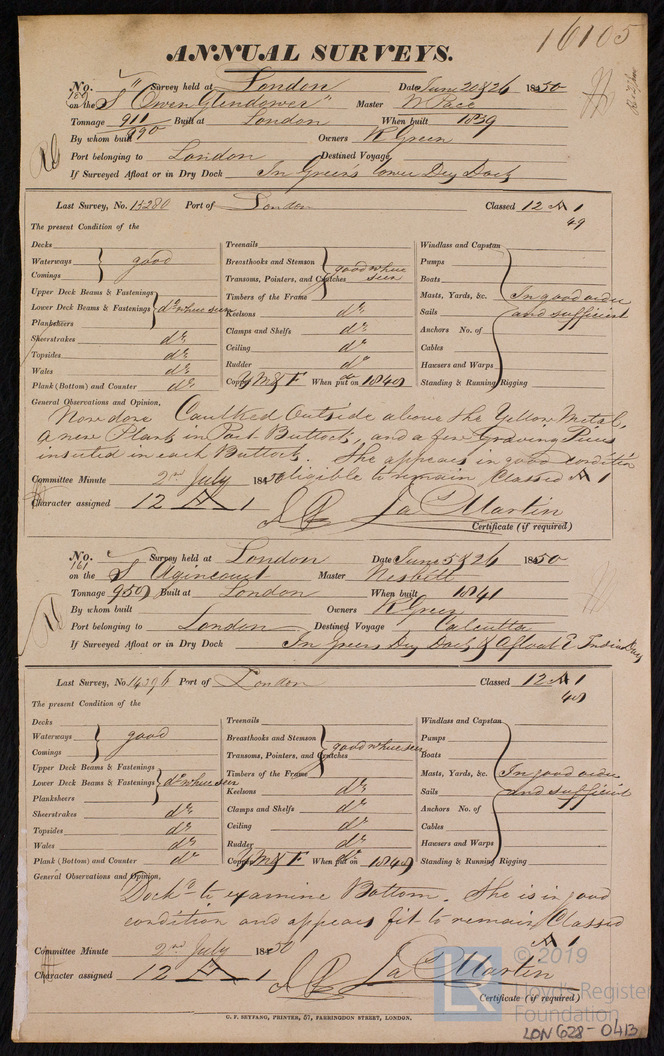 16105
ANNUAL SURVEYS.
No. 160 Survey held at London Date June 20 & 26 1850
on the S "Owen Glendower" Master W Pace
Tonnage 911 / 990 Built at London When built 1839
By whom built Owners R Green
Port belonging to London Destined Voyage
If Surveyed Afloat or in Dry Dock In Green's lower Dry Dock
Last Survey, No. 13280 Port of London Classed 12 A 1
49
The present Condition of the
Decks
Waterways good
Comings
Upper Deck Beams & Fastenings
Lower Deck Beams & Fastenings do where seen
Planksheers
Sheerstrakes do
Topsides do
Wales do
Plank (Bottom) and Counter do
Treenails
Breasthooks and Stemson good where
Transoms, Pointers, and Crutches seen
Timbers of the Frame
Keelsons do
Clamps and Shelfs do
Ceiling do
Rudder do
Copper YM & F When put on 1849
Windlass and Capstan
Pumps
Boats
Masts, Yards, &c. In good order
Sails and sufficient
Anchors No. of
Cables
Hawsers and Warps
Standing & Running Rigging
General Observations and Opinion,
Now done Caulked Outside above the Yellow Metal,
a new Plank in Port Buttock, and a few Graving Pieces
inserted in each Buttock. She appears in good condition
eligible to remain Classed A 1
Committee Minute 2nd July 1850
Character assigned 12 A 1
La Martin
Certificate (if required)
No. 161 Survey held at London Date June 5 & 26 1850
on the S Agincourt Master Nesbitt
Tonnage 950 Built at London When built 1841
By whom built Owners R Green
Port belonging to London Destined Voyage Calcutta
If Surveyed Afloat or in Dry Dock In Greens Dry Dock & Afloat E India Docks
Last Survey, No. 14396 Port of London Classed 12 A 1
49
The present Condition of the
Decks
Waterways good
Comings
Upper Deck Beams & Fastenings
Lower Deck Beams & Fastenings do where seen
Planksheers
Sheerstrakes do
Topsides do
Wales do
Plank (Bottom) and Counter do
Treenails
Breasthooks and Stemson
Transoms, Pointers, and Crutches good where seen
Timbers of the Frame
Keelsons do
Clamps and Shelfs do
Ceiling do
Rudder do
Copper YM & F When put on 1849
Windlass and Capstan
Pumps
Boats
Masts, Yards, &c. In good order
Sails and sufficient
Anchors No. of
Cables
Hawsers and Warps
Standing & Running Rigging
General Observations and Opinion,
Dockd to examine Bottom. She is in good
condition and appears fit to remain Classed
A 1
Committee Minute 2nd July 1850
Character assigned 12 A 1
La Martin
Certificate (if required)
G. F. SEYFANG, PRINTER, 57, FARRINGDON STREET, LONDON.
© 2019
LR
Lloyd's Register
Foundation
LON 628-0413